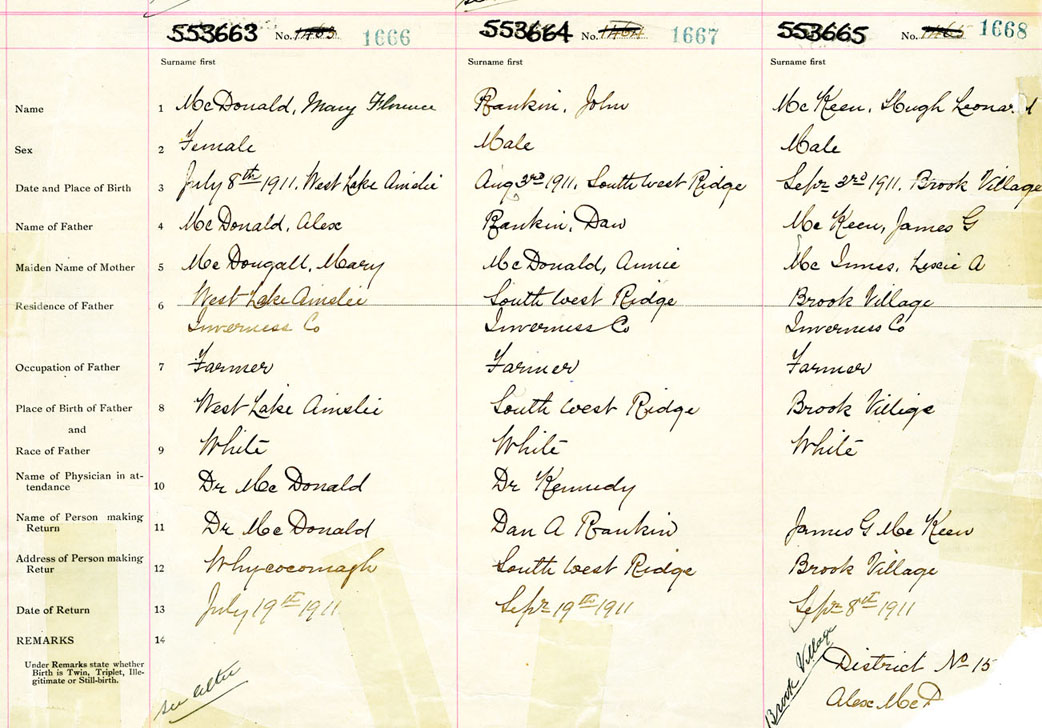 553663 No. 1666 553664 No. 1667 553665 No. 1668
Surname first Surname first Surname first
Name 1 McDonald, Mary Florence Rankin, John McKeen, Hugh Leonard
Sex 2 Female Male Male
Date and Place of Birth 3 July 8th 1911. West Lake Ainslie Aug 3rd 1911. South West Ridge Sept 3rd 1911. Brook Village
Name of Father 4 McDonald, Alex Rankin, Dan McKeen, James G
Maiden Name of Mother 5 McDougall, Mary McDonald, Annie McInnes, Lexie A
Residence of Father 6 West Lake Ainslie South West Ridge Brook Village
Inverness Co Inverness Co Inverness Co
Occupation of Father 7 Farmer Farmer Farmer
Place of Birth of Father 8 West Lake Ainslie South West Ridge Brook Village
and
Race of Father 9 White White White
Name of Physician in at-
tendance 10 Dr McDonald Dr Kennedy
Name of Person making
Return 11 Dr McDonald Dan A Rankin James G McKeen
Address of Person making
Retur 12 Whycocomagh South West Ridge Brook Village
Date of Return 13 July 19th 1911 Sept 19th 1911 Sept 8th 1911
REMARKS 14
Under Remarks state whether
Birth is Twin, Triplet, Ille-
gitimate or Still-birth.
see letter
Brook Village
District No 15
Alex McD